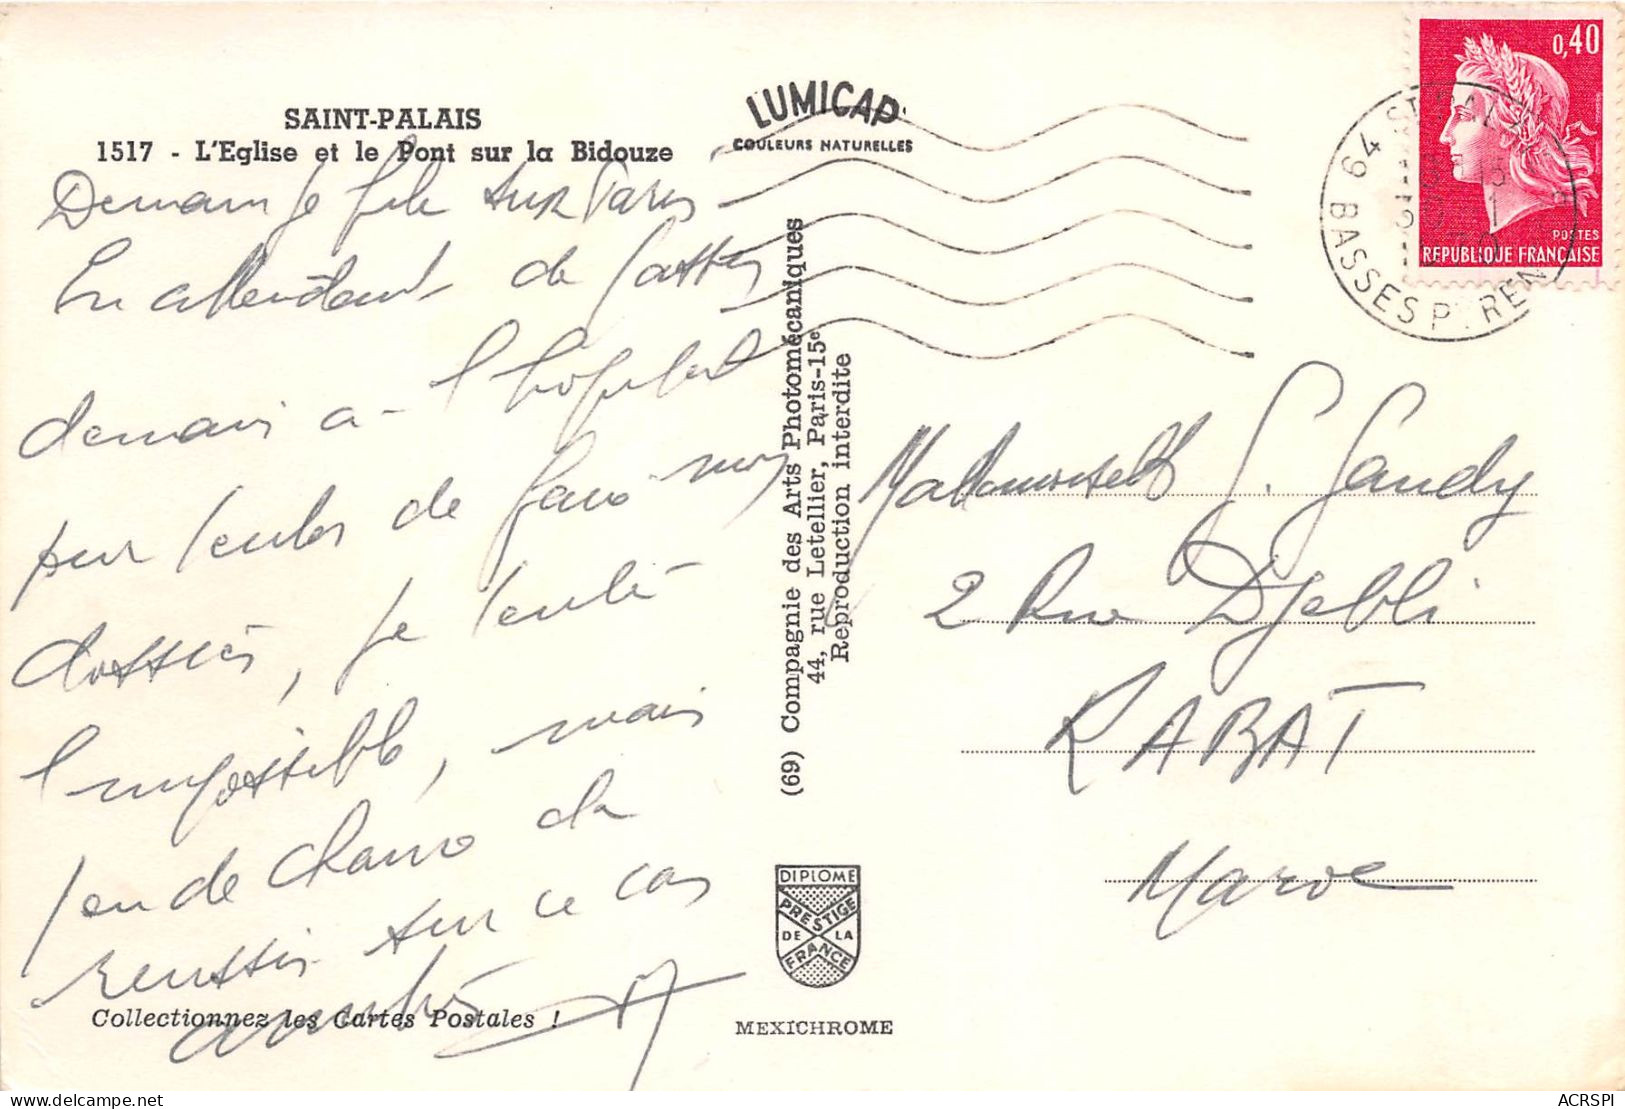 SAINT-PALAIS
1517 - L'Eglise et le Pont sur la Bidouze
LUMICAP
COULEURS NATURELLES
0,40
POSTES
REPUBLIQUE FRANÇAISE
64 BASSES PYRENEES
Demain je file sur Paris
En attendant de passer
demain à l'hopital
pur
de
dossier, je tente
l'impossible, mais
peu de chance de
reussir sur ce cas
(69) Compagnie des Arts Photomécaniques
44, rue Letellier, Paris-15e
Reproduction interdite
Mademoiselle G. Gandy
2 Rue Djebli
RABAT
Maroc
DIPLOME
PRESTIGE
DE LA
FRANCE
Collectionnez les Cartes Postales !
MEXICHROME
ACRSPI